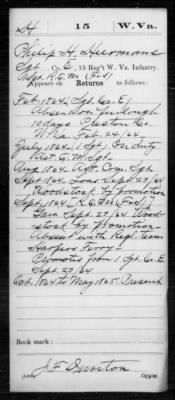 H | 15 | W. Va.
Philip H. Hiermans
Sgt, Co. E, 15 Reg't W. Va. Infantry.
Appears on
Returns as follows:
Feb. 1864, Sgt. Co. E,
Absent on furlough
15 days Preston Co.
W. Va. Feb. 24/64.
July 1864, 1 Sgt, On duty
Act. Q. M. Sgt.
Aug 1864 Act. Com. Sgt.
Sept. 1864, Loss Sept. 29/64
Woodstock by promotion
Sept. 1864, R. Q. M.
Gain Sept. 29/64 Wood-
stock by promotion-
Absent with Regt. team
Harpers Ferry-
Promoted from 1 Sgt Co. E
Sept. 29/64
Oct. 1864 to May 1865 Present
Book mark:
J. F. Dunton
Copyist.